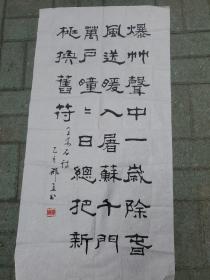 爆竹聲中一歲除春
風送暖入屠蘇千門
萬戶曈〻日總把新
桃換舊符
王安石詩